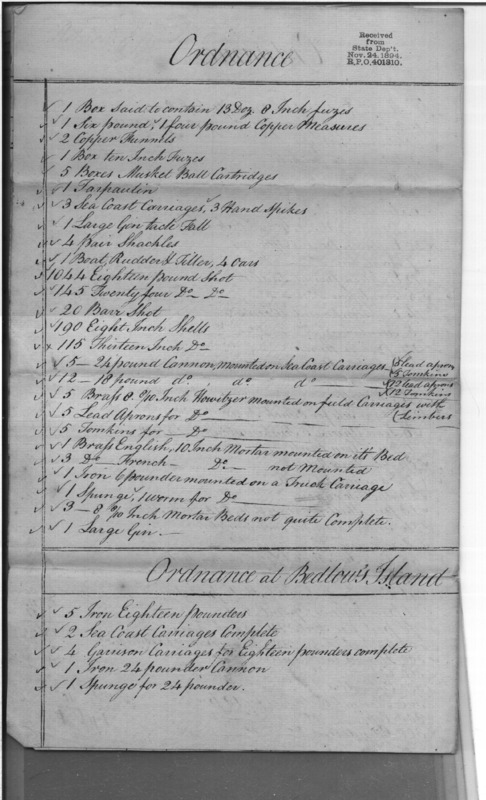 Ordnance
Received
from
State Dep't.
Nov. 24, 1894,
R.P.O, 401310.
1 Box Said to contain 13 Doz. 8 Inch fuzes
1 Six pound, 1 four pound Copper Measures
2 Copper Funnels
1 Box ten Inch Fuzes
5 Boxes Musket Ball Cartridges
1 Tarpaulin
3 Sea Coast Carriages, 3 Hand Spikes
1 Large Gin tacle Fall
4 pair Shackles
1 Boat, Rudder & Tiller, 4 Oars
1044 Eighteen pound Shot
145 Twenty four Do. Do.
20 Barr Shot
190 Eight Inch Shells
115 Thirteen Inch Do.
5 — 24 pound Cannon, mounted on Sea Coast Carriages 5 lead aprons
5 Tomkins
12 — 18 pound do. do. do. 12 lead aprons
12 Tomkins
5 Brass 8 Inch Howitzer mounted on field Carriages with
Limbers
5 Lead Aprons for Do
5 Tomkins for Do
1 Brass English, 10 Inch Mortar mounted on its Bed
3 Do. French — Do. — not Mounted
1 Iron 6 pounder mounted on a Truck Carriage
1 Spunge, 1 worm for Do
3 — 8 Inch Mortar Beds not quite Complete.
1 Large Gin. —
Ordnance at Bedlow's Island
5 Iron Eighteen pounders
2 Sea Coast Carriages Complete
4 Garrison Carriages for Eighteen pounders complete
1 Iron 24 pounder Cannon
1 Spunge for 24 pounder.